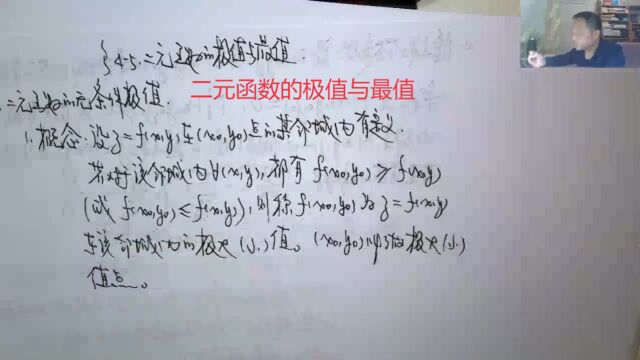 §4-5. 二元函数的极值与最值.
二元函数的极值与最值
二元函数的无条件极值.
1. 概念: 设z=f(x,y)在(x0,y0)点的某邻域内有定义.
若对该邻域内∀(x,y),都有 f(x0,y0)≥f(x,y)
(或 f(x0,y0)≤f(x,y)),则称f(x0,y0)为z=f(x,y)
在该邻域内的极大(小)值。(x0,y0)叫做极大(小)
值点。